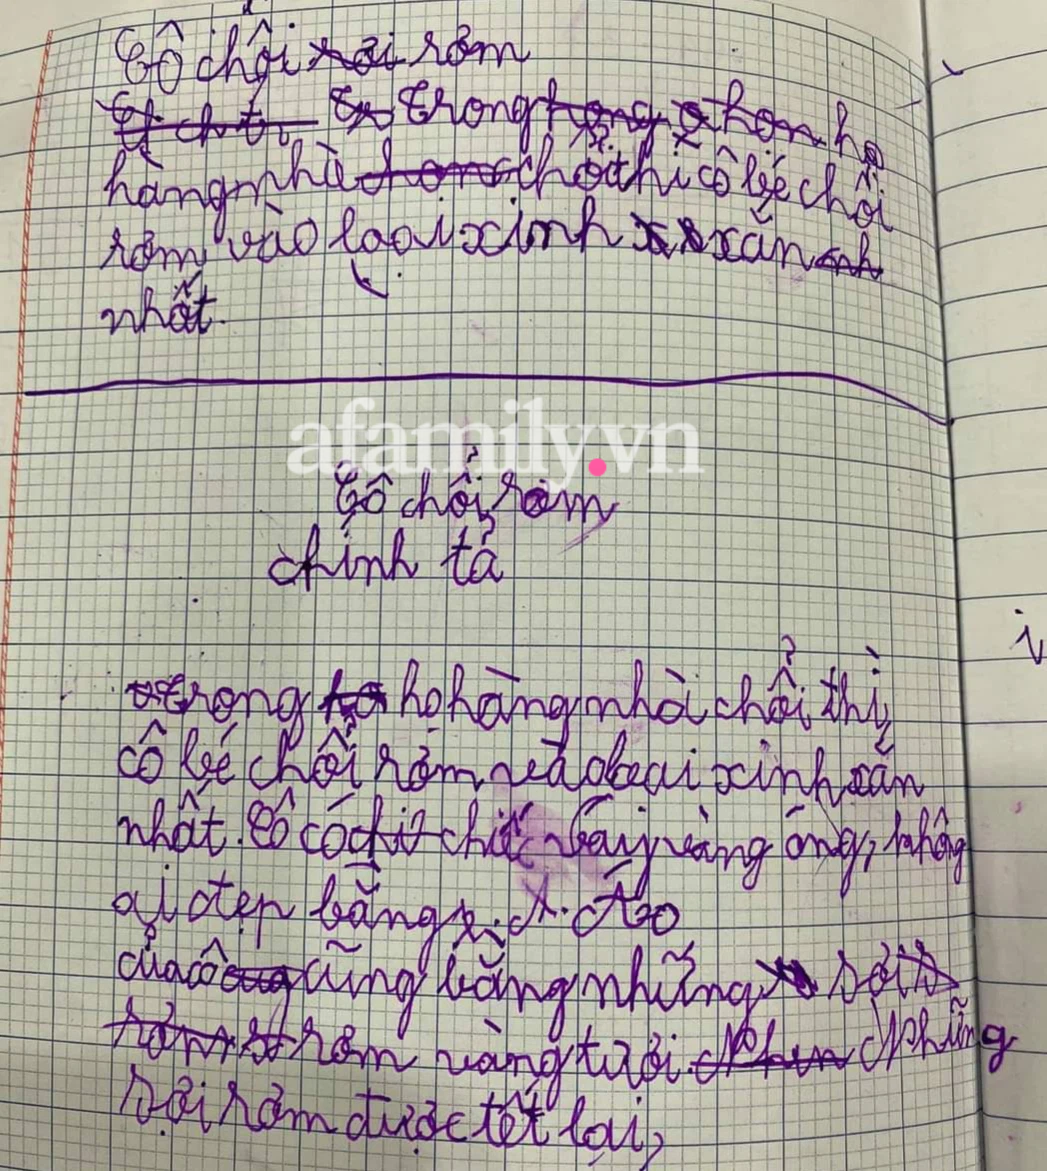 Cô chổi rơm
trong họ
hàng nhà chổi thì cô bé chổi
rơm vào loại xinh xắn
nhất.
afamily.vn
Cô chổi rơm
chính tả
trong họ hàng nhà chổi thì
cô bé chổi rơm vào loại xinh xắn
nhất. Cô có chiếc váy vàng óng, không
ai đẹp bằng. Áo
của cô cũng bằng những sợi
rơm vàng tươi. Những
sợi rơm được tết lại,